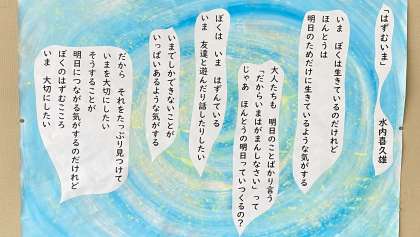 「はずむいま」
水内喜久雄
いま ぼくは生きているのだけれど
ほんとうは
明日のためだけに生きているような気がする
大人たちも 明日のことばかり言う
「だからいまはがまんしなさい」って
じゃあ ほんとうの明日っていつくるの?
ぼくは いま はずんでいる
いま 友達と遊んだり話したりしたい
いまでしかできないことが
いっぱいあるような気がする
だから それをたっぷり見つけて
いまを大切にしたい
そうすることが
明日につながる気がするのだけれど
ぼくのはずむこころ
いま 大切にしたい